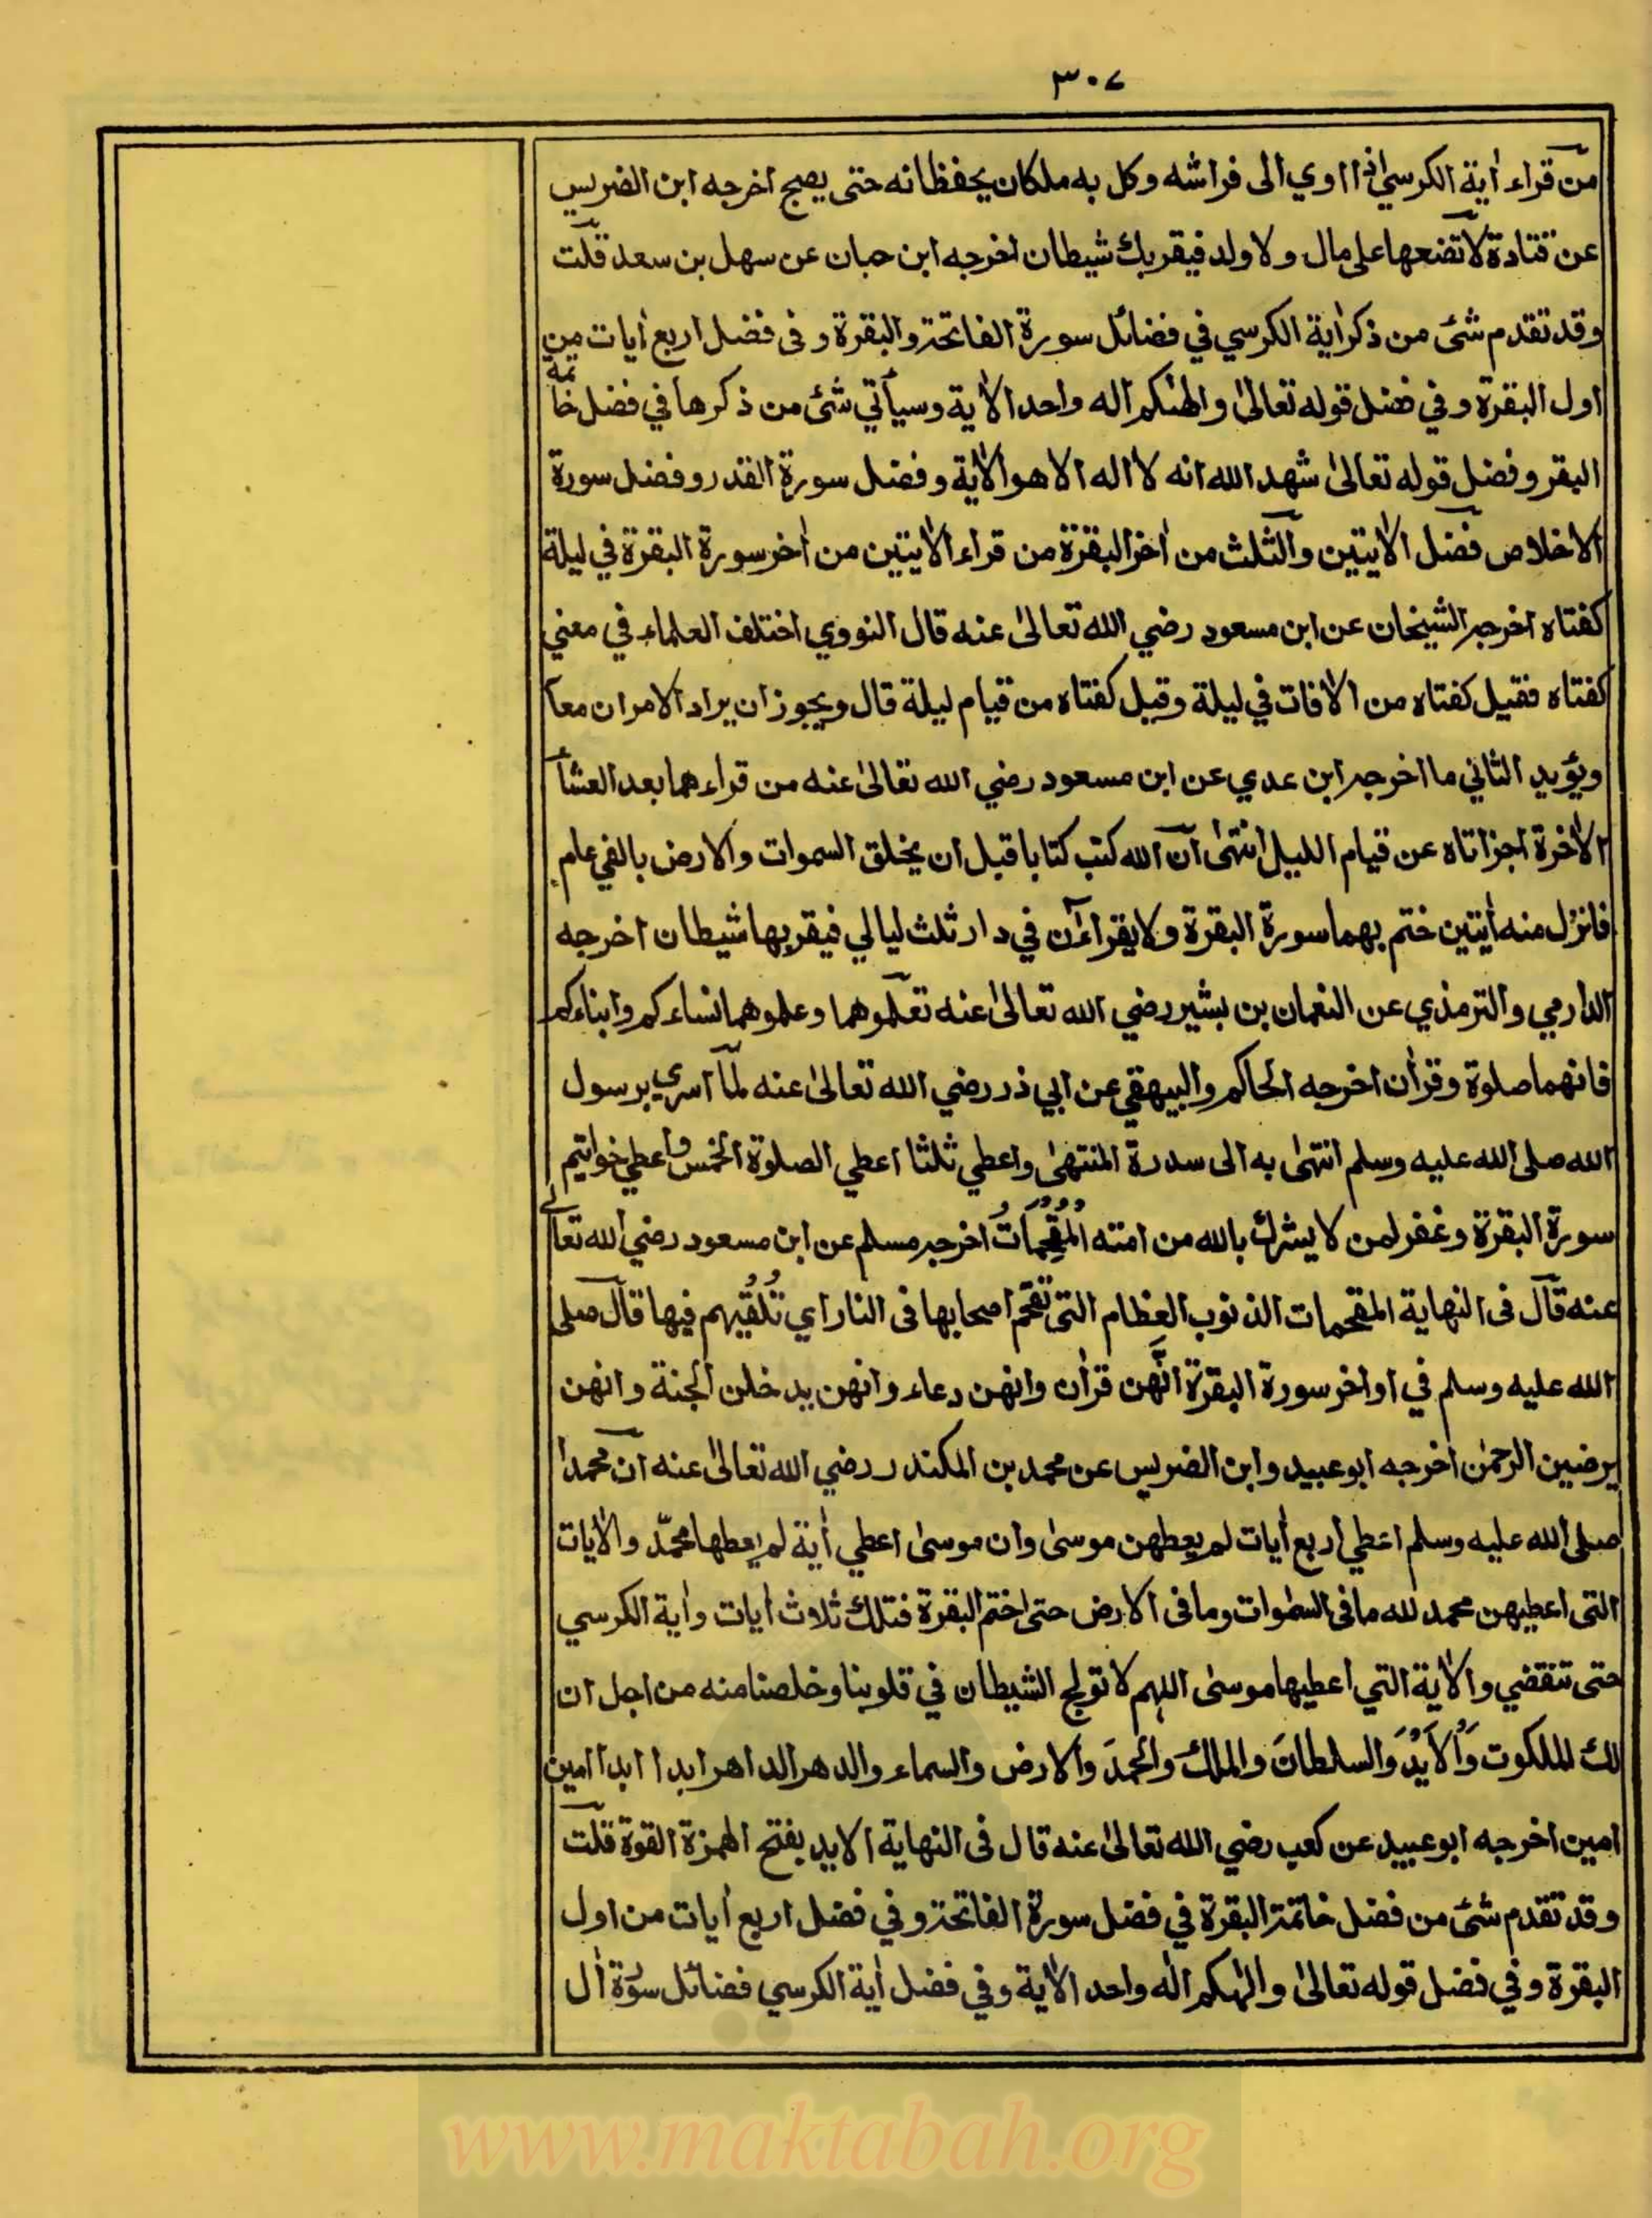 ٣٠٧
من قراء أية الكرسي اذا اوي الى فراشه وكل به ملكان يحفظانه حتى يصبح اخرجه ابن الضريس
عن قتادة لا تضعها على مال ولا ولد فيقربك شيطان اخرجه ابن حبان عن سهل بن سعد قلت
وقد تقدم شئ من ذكر أية الكرسي في فضائل سورة الفاتحة والبقرة و فى فضل اربع أيات من
اول البقرة و في فضل قوله تعالىٰ والهٰكم اله واحد الأية وسيأتي شئ من ذكرها في فضل خاتمة
البقر و فضل قوله تعالىٰ شهد الله انه لا اله الا هو الأية و فضل سورة القدر و فضل سورة
الاخلاص فضل الأيتين والثلث من أخر البقرة من قراء الأيتين من أخر سورة البقرة في ليلة
كفتاه اخرجه الشيخان عن ابن مسعود رضي الله تعالىٰ عنه قال النووي اختلف العلماء في معني
كفتاه فقيل كفتاه من الأفات في ليلة وقيل كفتاه من قيام ليلة قال ويجوز ان يراد الامران معا
ويؤيد الثاني ما اخرجه ابن عدي عن ابن مسعود رضي الله تعالىٰ عنه من قراءهما بعد العشاء
الأخرة اجزاتاه عن قيام الليل انتهىٰ ان الله كتب كتابا قبل ان يخلق السموات والارض بالفي عام
فانزل منه أيتين ختم بهما سورة البقرة ولا يقراءٰن في دار ثلث ليالي فيقربها شيطان اخرجه
الدارمي والترمذي عن النعمان بن بشير رضي الله تعالىٰ عنه تعلموهما وعلموهما نساءكم وابناءكم
فانهما صلوة وقرأن اخرجه الحاكم والبيهقي عن ابي ذر رضي الله تعالىٰ عنه لما اسري برسول
الله صلى الله عليه وسلم انتهىٰ به الى سدرة المنتهىٰ واعطي ثلثا اعطي الصلوة الخمس واعطي خواتيم
سورة البقرة وغفر لمن لا يشرك بالله من امته المُقْحِمَاتُ اخرجه مسلم عن ابن مسعود رضي الله تعالى
عنه قال فى النهاية المقحمات الذنوب العظام التى تقحم اصحابها فى النار اي تُلْقيهم فيها قال صلى
الله عليه وسلم في اواخر سورة البقرة انَّهن قرأن وانهن دعاء وانهن يدخلن الجنة وانهن
يرضين الرحمٰن اخرجه ابو عبيد وابن الضريس عن محمد بن المكندر رضي الله تعالىٰ عنه ان محمدا
صلى الله عليه وسلم اعطي اربع أيات لم يعطهن موسىٰ وان موسىٰ اعطي أية لم يعطها محمّد والأيات
التى اعطيهن محمد لله ما فى السمٰوات وما فى الارض حتى اختم البقرة فتلك ثلاث أيات وأية الكرسي
حتى تنقضي والأية التي اعطيها موسىٰ اللهم لا تولج الشيطان في قلوبنا وخلصنا منه من اجل ان
لك الملكوت وَالاَيْدَ وَالسلطانَ والملكَ والحمدَ والارض والسماء والدهر الداهر ابدا ابدا امين
امين اخرجه ابو عبيد عن كعب رضي الله تعالىٰ عنه قال فى النهاية الايد بفتح الهمزة القوة قلت
وقد تقدم شئ من فضل خاتمة البقرة في فضل سورة الفاتحة و في فضل اربع أيات من اول
البقرة و في فضل قوله تعالىٰ والهٰكم الٰه واحد الأية و في فضل أية الكرسي فضائل سورة أل
www.maktabah.org